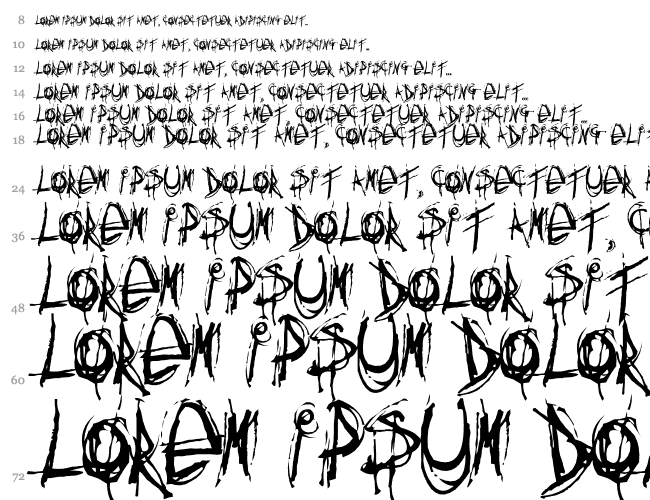 8 LOREM IPSUM DOLOR SIT AMET, CONSECTETUER ADIPISCING ELIT...
10 LOREM IPSUM DOLOR SIT AMET, CONSECTETUER ADIPISCING ELIT...
12 LOREM IPSUM DOLOR SIT AMET, CONSECTETUER ADIPISCING ELIT...
14 LOREM IPSUM DOLOR SIT AMET, CONSECTETUER ADIPISCING ELIT...
16 LOREM IPSUM DOLOR SIT AMET, CONSECTETUER ADIPISCING ELIT...
18 LOREM IPSUM DOLOR SIT AMET, CONSECTETUER ADIPISCING ELI
24 LOREM IPSUM DOLOR SIT AMET, CONSECTETUER
36 LOREM IPSUM DOLOR SIT AMET,
48 LOREM IPSUM DOLOR SIT
60 LOREM IPSUM DOLOR
72 LOREM IPSUM DO